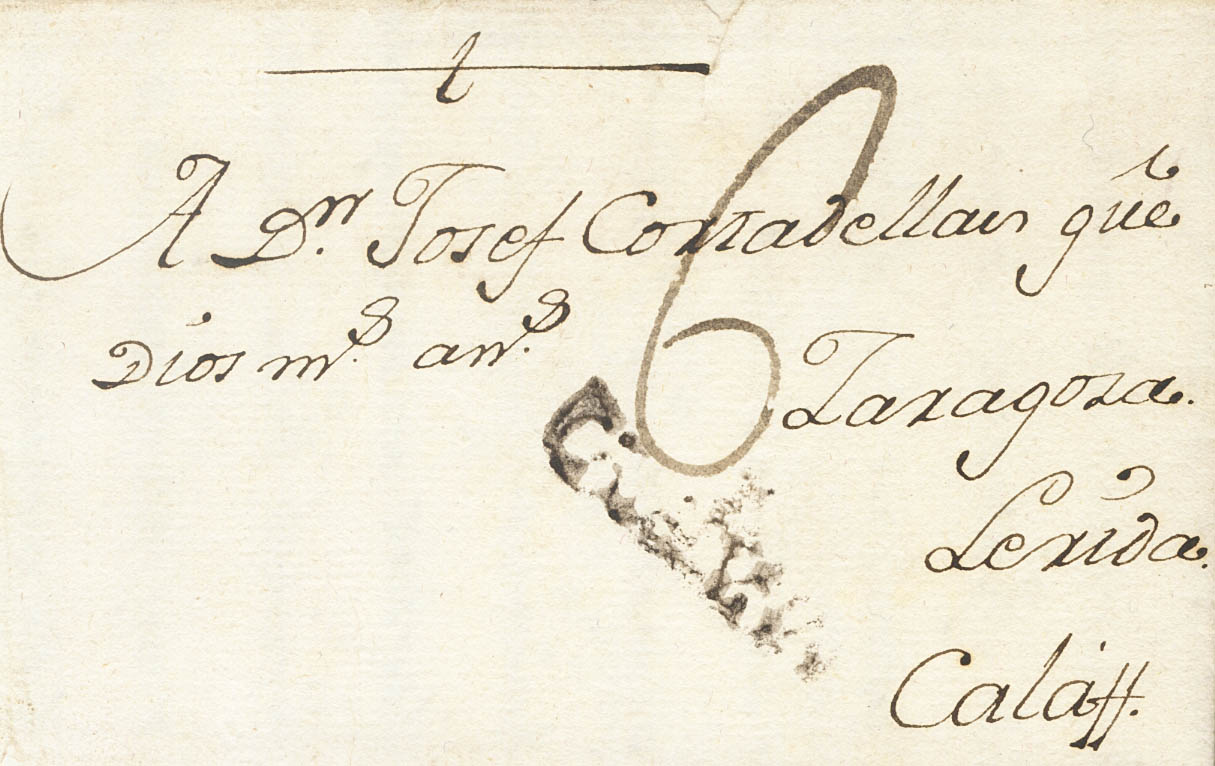 A Dn. Josef Cortadellas güe
Dios ms. ans.
6
Zaragoza.
Lerida.
Calaff.